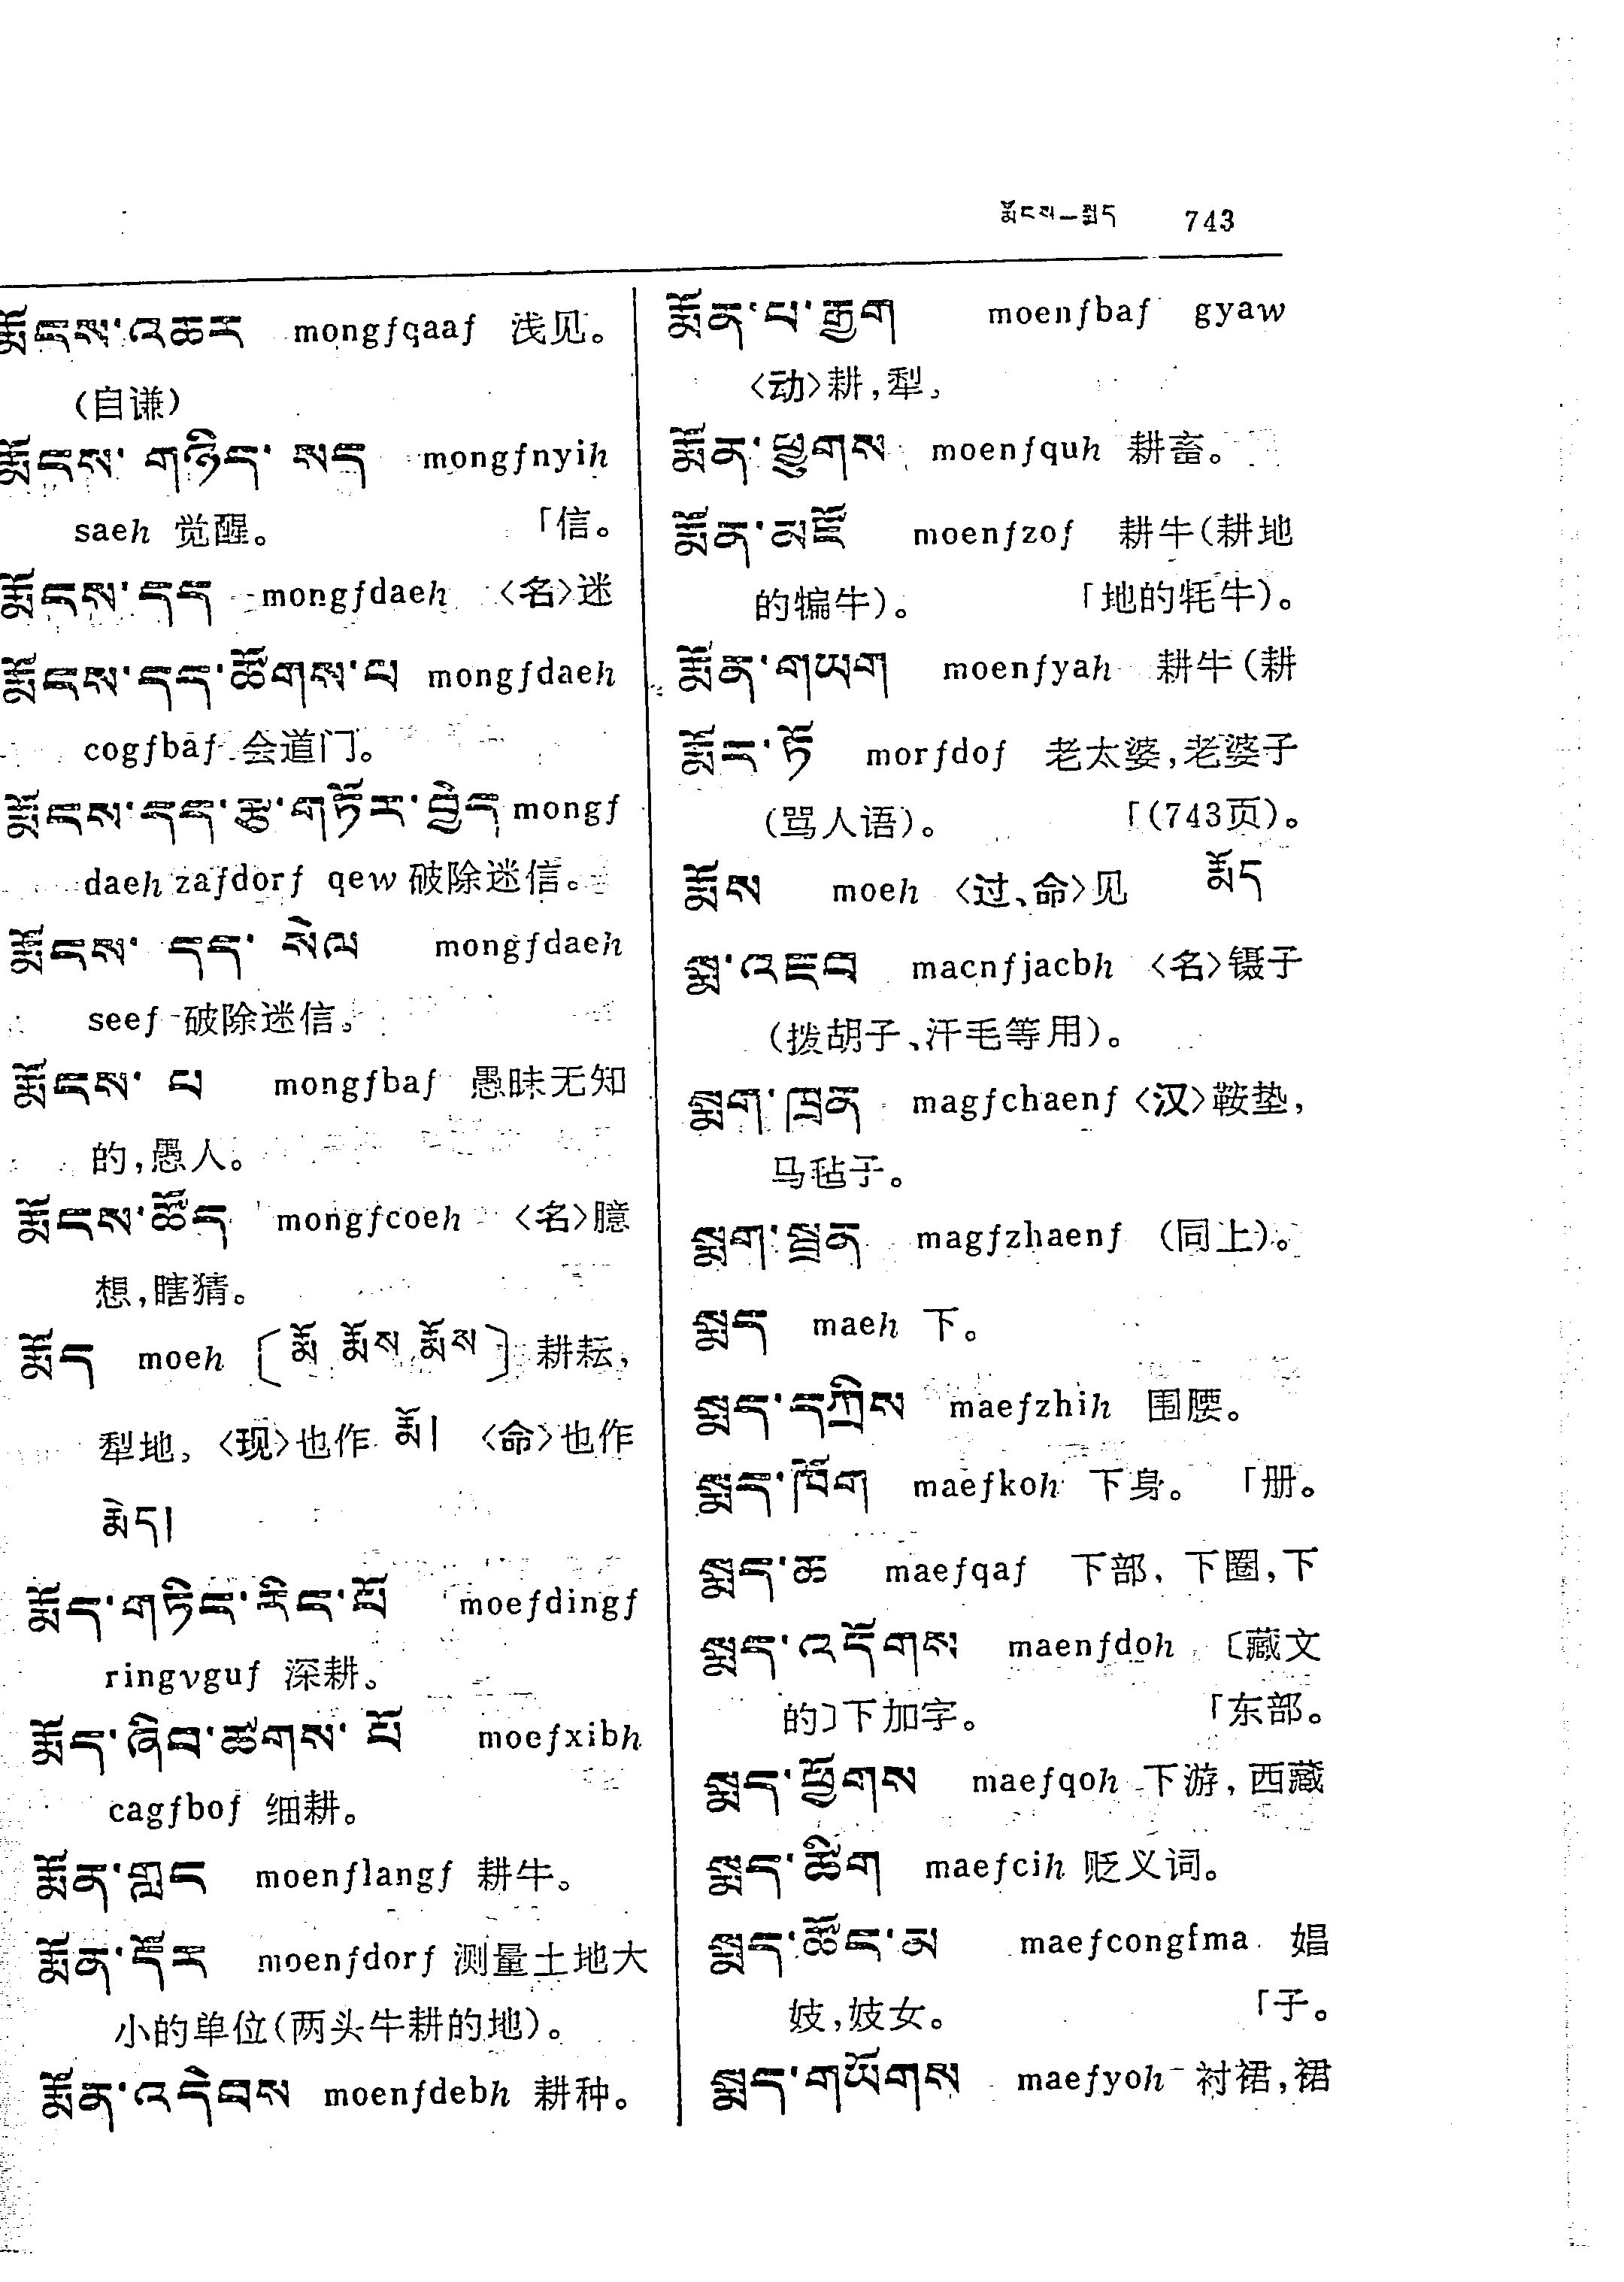 རྨོངས—སྨད 743
རྨོངས་འཆར mongfqaaf 浅见。
(自谦)
རྨོངས་གཉིད་སད mongfnyih
saeh 觉醒。 「信。
རྨོངས་དད mongfdaeh 〈名〉迷
རྨོངས་དད་ཚོགས་པ mongfdaeh
cogfbaf 会道门。
རྨོངས་དད་རྩ་གཏོར་བྱེད mongf
daeh zafdorf qew 破除迷信。
རྨོངས་དད་སེལ mongfdaeh
seef 破除迷信。
རྨོངས་པ mongfbaf 愚昧无知
的,愚人。
རྨོངས་ཚོད mongfcoeh 〈名〉臆
想,瞎猜。
རྨོད moeh 〔རྨོ རྨོས རྨོས〕耕耘,
犁地, 〈现〉也作 རྨོ། 〈命〉也作
རྨེད།
རྨོད་གཏིང་རིང་པོ moefdingf
ringvguf 深耕。
རྨོད་ཞིབ་ཚགས་པོ moefxibh
cagfbof 细耕。
རྨོན་གླང moenflangf 耕牛。
རྨོན་དོར moenfdorf 测量土地大
小的单位(两头牛耕的地)。
རྨོན་འདེབས moenfdebh 耕种。
རྨོན་པ་རྒྱག moenfbaf gyaw
〈动〉耕,犁,
རྨོན་ཕྱུགས moenfquh 耕畜。
རྨོན་མཛོ moenfzof 耕牛(耕地
的犏牛)。 「地的牦牛)。
རྨོན་གཡག moenfyah 耕牛(耕
རྨོར་ཏོ morfdof 老太婆,老婆子
(骂人语)。 「(743页)。
རྨོས moeh 〈过、命〉见 རྨོད
སྨ་འཇབ macnfjacbh 〈名〉镊子
(拨胡子、汗毛等用)。
སྨག་ཁྲན magfchaenf〈汉〉鞍垫,
马毡子。
སྨག་སྦྲན magfzhaenf (同上)。
སྨད maeh 下。
སྨད་དཀྲིས maefzhih 围腰。
སྨད་ཁོག maefkoh 下身。 「册。
སྨད་ཆ maefqaf 下部, 下圈,下
སྨད་འདོགས maenfdoh 〔藏文
的〕下加字。 「东部。
སྨད་ཕྱོགས maefqoh 下游, 西藏
སྨད་ཚིག maefcih 贬义词。
སྨད་ཚོང་མ maefcongfma 娼
妓,妓女。 「子。
སྨད་གཡོགས maefyoh 衬裙,裙